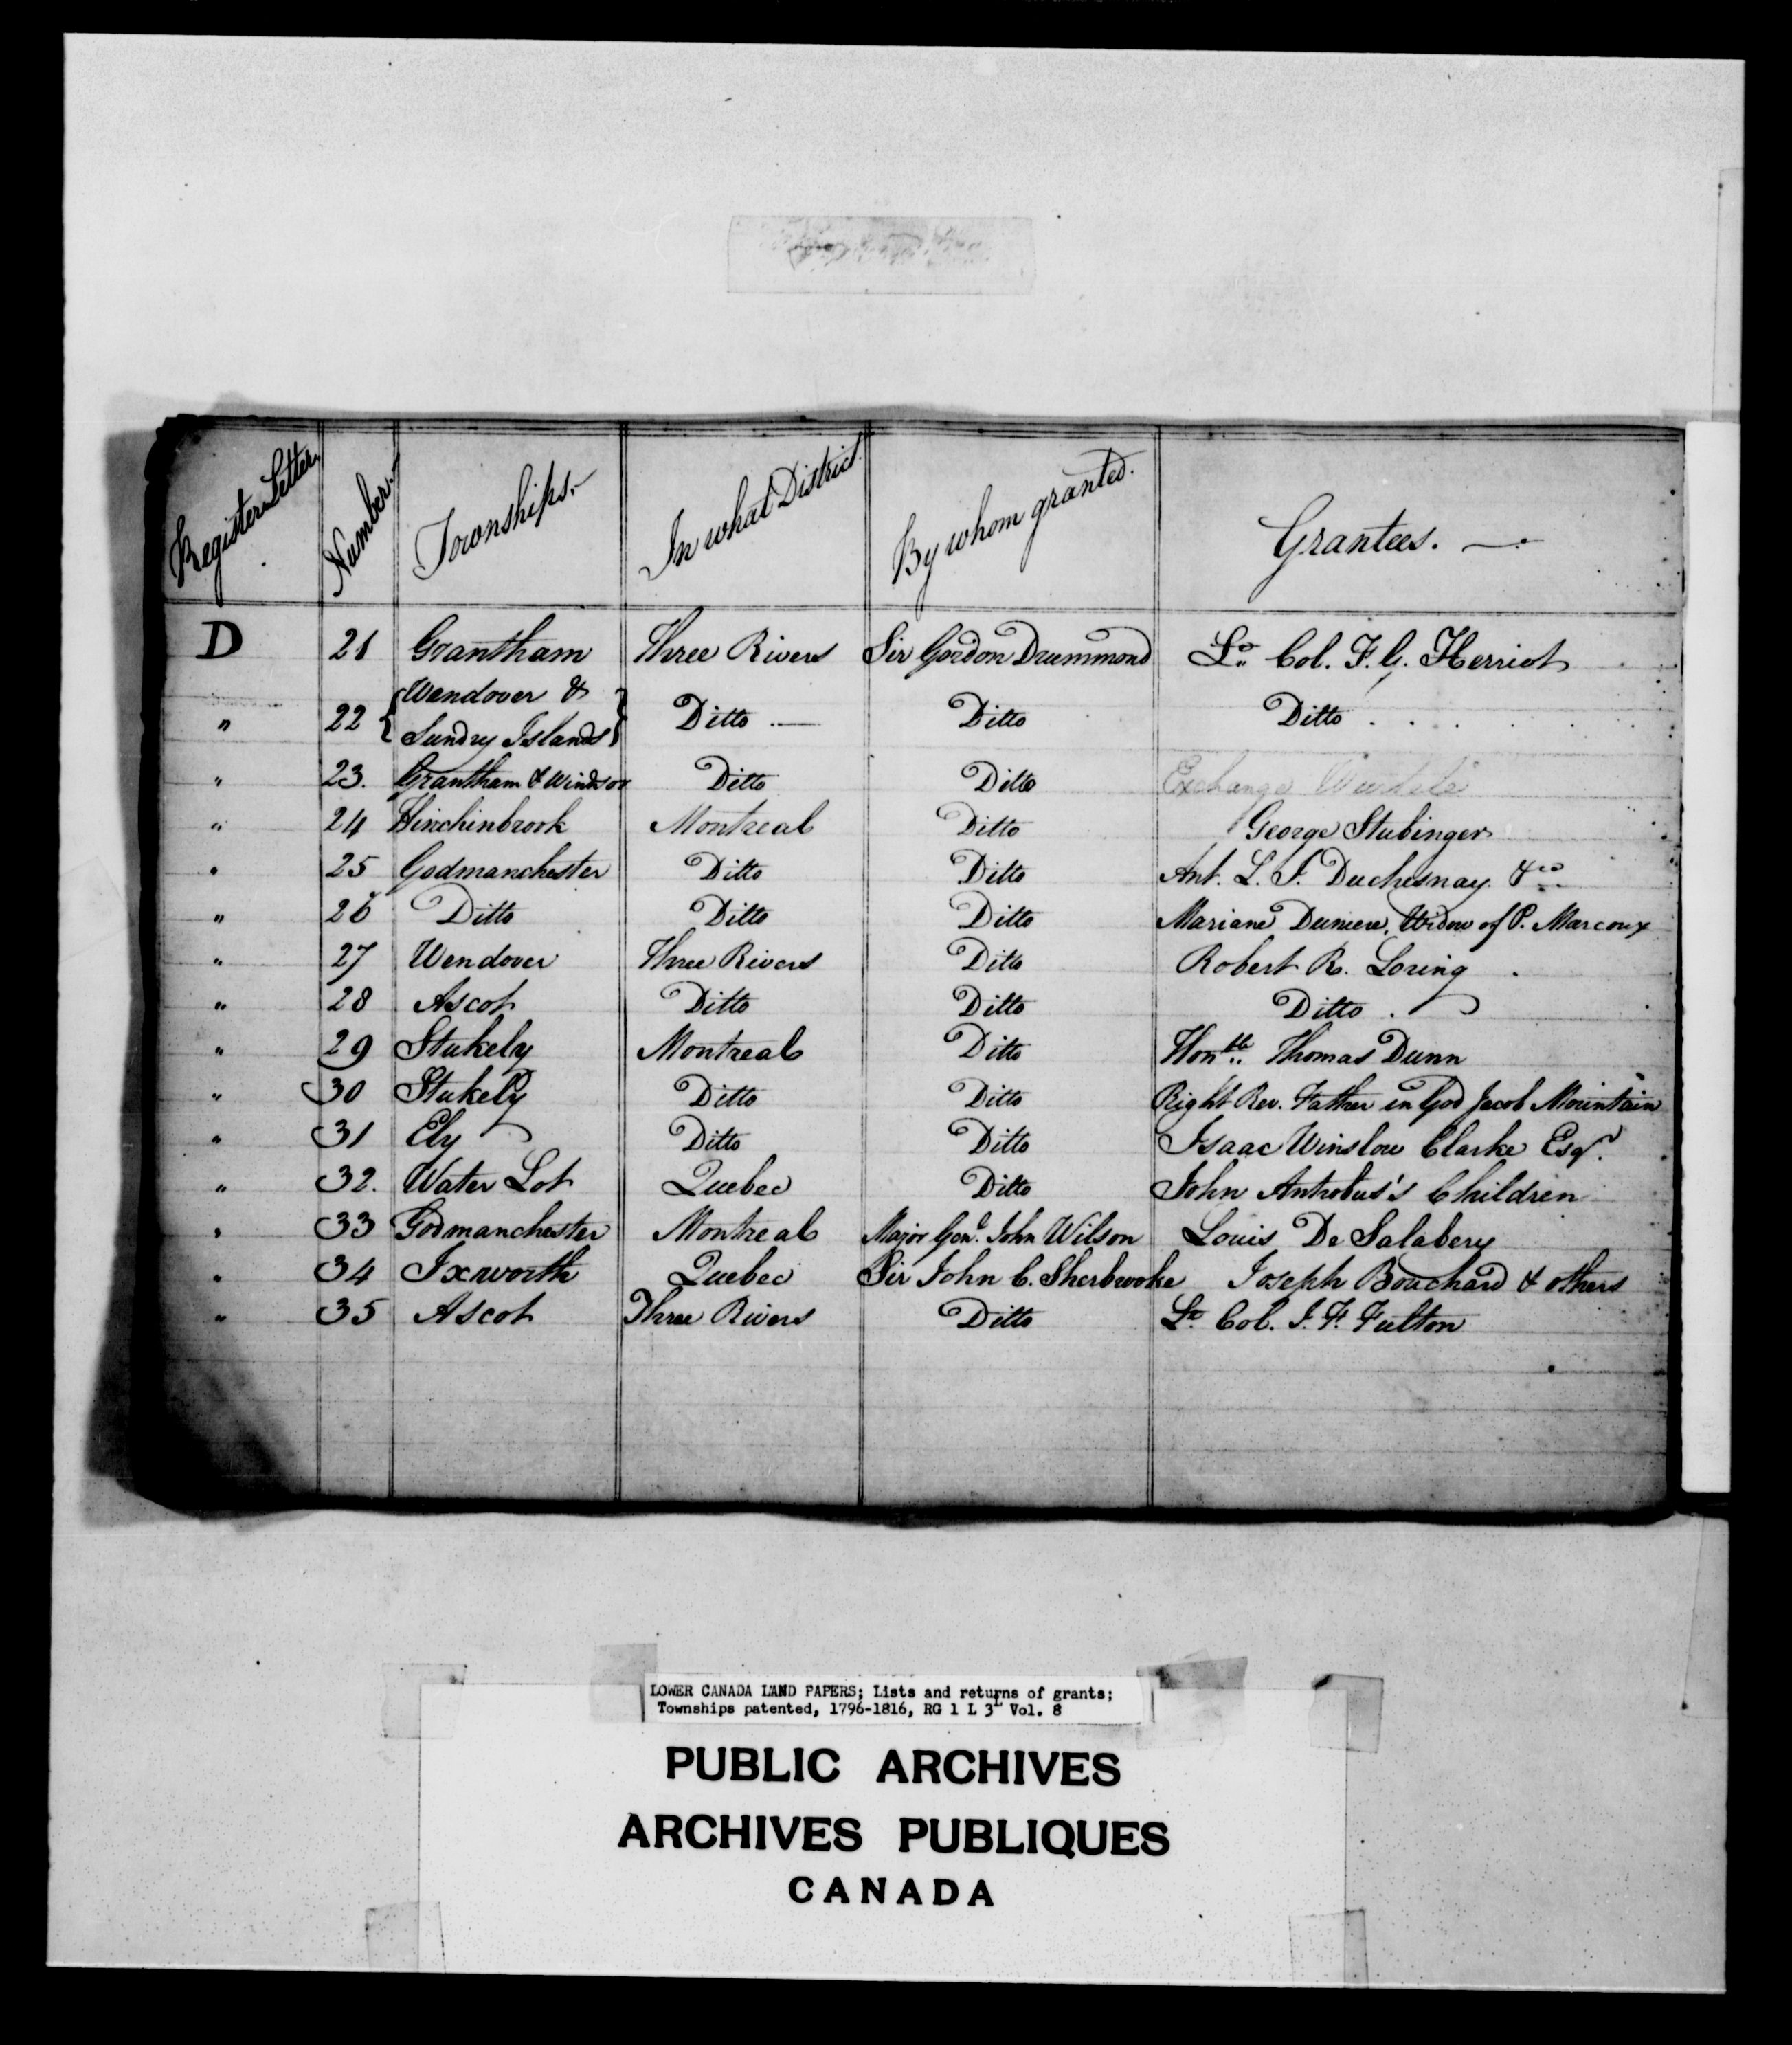 Register Letter. Number. Townships. In what District. By whom granted. Grantees.
D 21 Grantham Three Rivers Sir Gordon Drummond Lt. Col. F. G. Herriot
" 22 { Wendover &
Sundry Islands } Ditto Ditto Ditto
" 23. Grantham & Windsor Ditto Ditto Exchange
" 24 Hinchinbrook Montreal Ditto George Stubinger
" 25 Godmanchester Ditto Ditto Ant. L. J. Duchesnay &co
" 26 Ditto Ditto Ditto Mariane Duniere, Widow of P. Marcoux
" 27 Wendover Three Rivers Ditto Robert R. Loring
" 28 Ascot Ditto Ditto Ditto
" 29 Stukely Montreal Ditto Honble. Thomas Dunn
" 30 Stukely Ditto Ditto Right Rev. Father in God Jacob Mountain
" 31 Ely Ditto Ditto Isaac Winslow Clarke Esqr.
" 32. Water Lot Quebec Ditto John Antrobus's Children
" 33 Godmanchester Montreal Major Genl. John Wilson Louis De Salabery
" 34 Ixworth Quebec Sir John C. Sherbrooke Joseph Bouchard & others
" 35 Ascot Three Rivers Ditto Lt. Col. J. F. Fulton
LOWER CANADA LAND PAPERS; Lists and returns of grants;
Townships patented, 1796-1816, RG 1 L 3L Vol. 8
PUBLIC ARCHIVES
ARCHIVES PUBLIQUES
CANADA